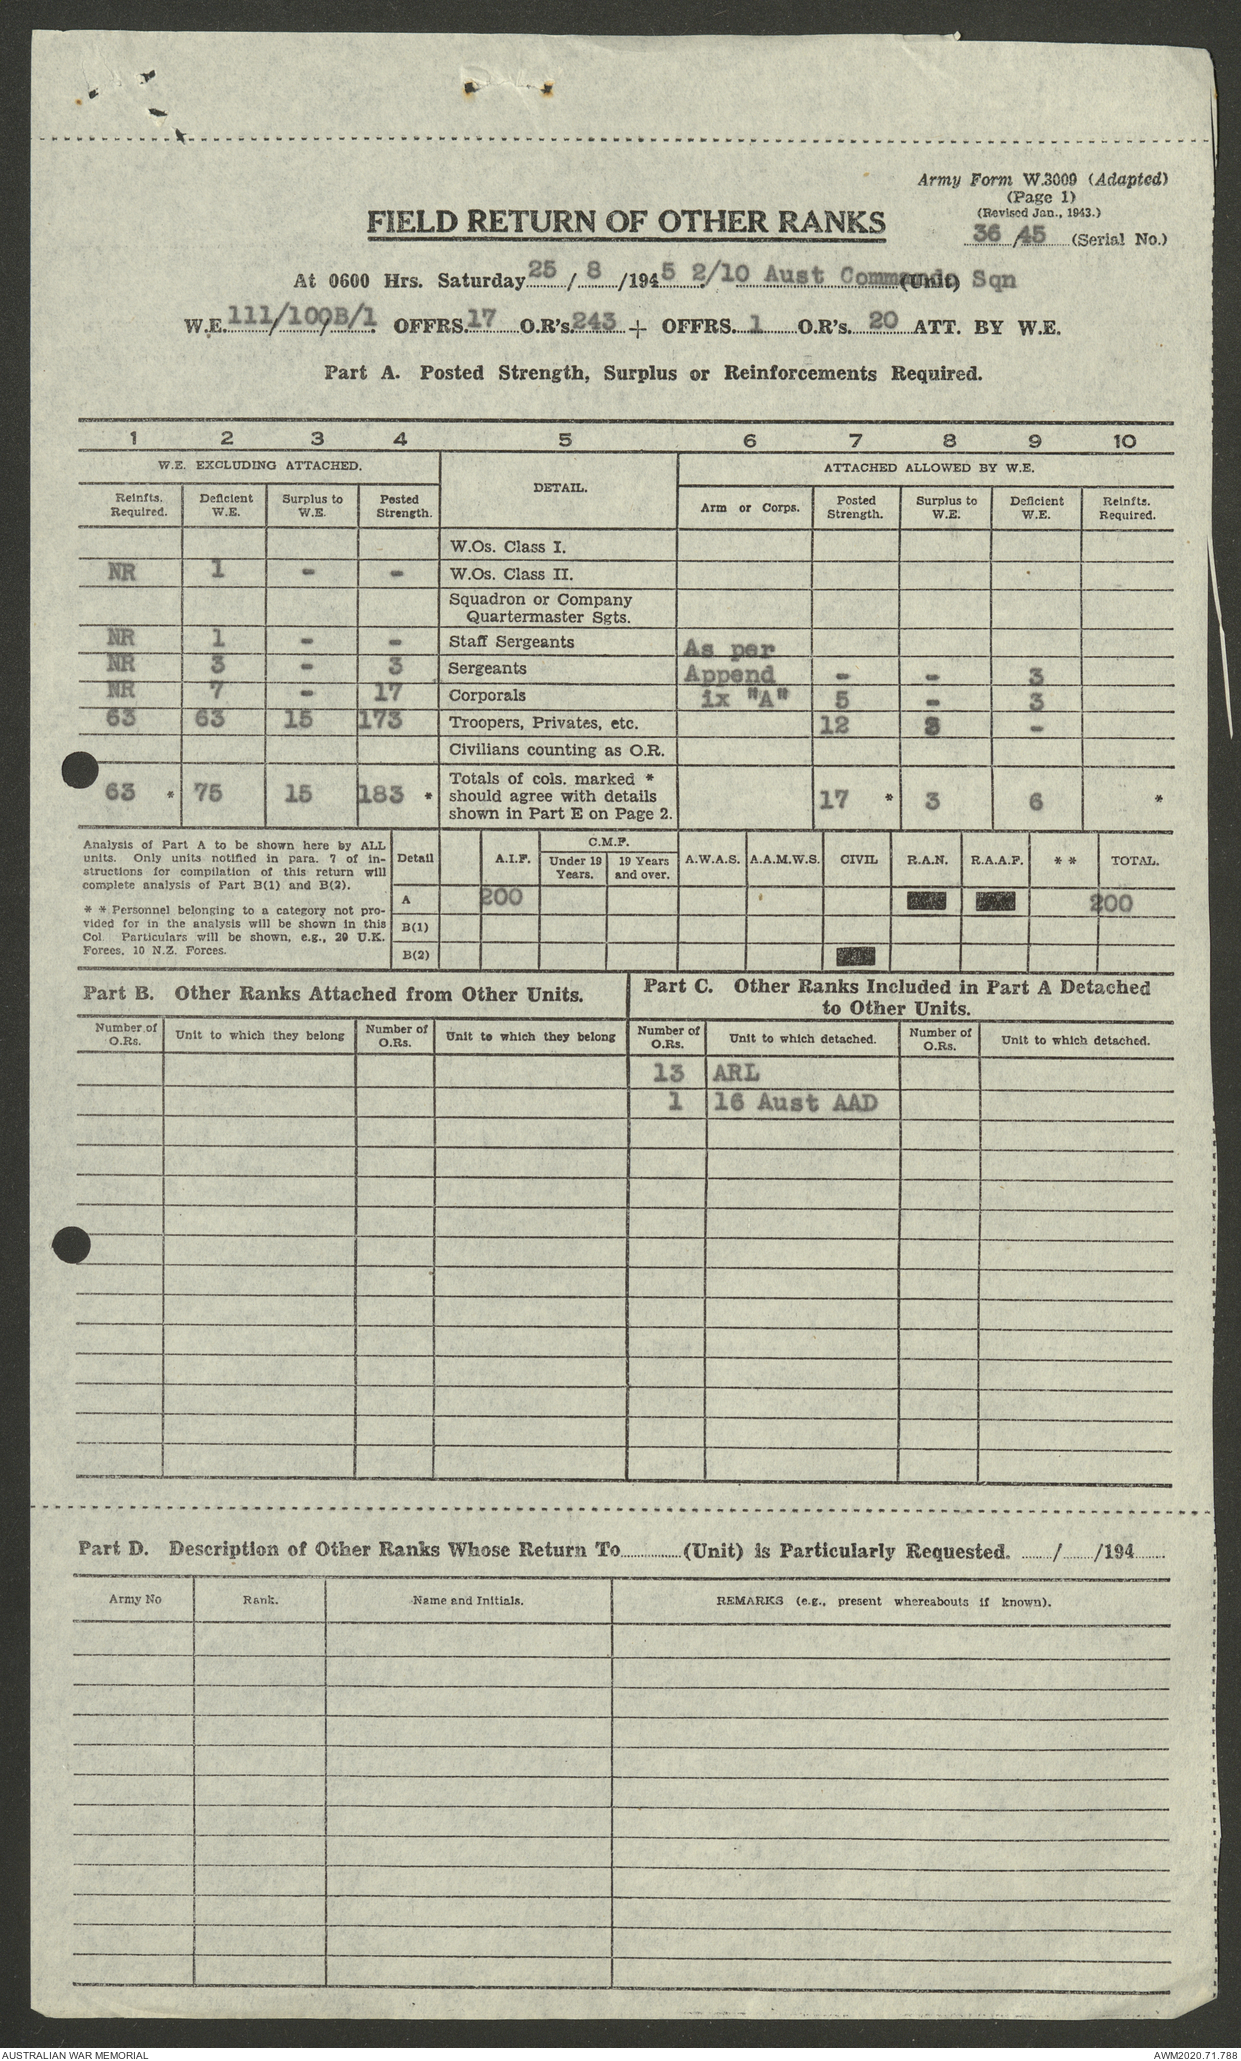 Army Form W.3009 (Adapted)
(Page 1)
(Revised Jan., 1943.)
36/45 (Serial No.)
FIELD RETURN OF OTHER RANKS
At 0600 Hrs. Saturday 25/8/1945 2/10 Aust Commando Sqn (Unit)
W.E. 111/100B/1 OFFRS. 17 O.R's. 243 + OFFRS. 1 O.R's. 20 ATT. BY W.E.
Part A. Posted Strength, Surplus or Reinforcements Required.
1 2 3 4 5 6 7 8 9 10
W.E. EXCLUDING ATTACHED. DETAIL. ATTACHED ALLOWED BY W.E.
Reinfts. Required. Deficient W.E. Surplus to W.E. Posted Strength. Arm or Corps. Posted Strength. Surplus to W.E. Deficient W.E. Reinfts. Required.
W.Os. Class I.
NR 1 - - W.Os. Class II.
Squadron or Company
Quartermaster Sgts.
NR 1 - - Staff Sergeants As per
NR 3 - 3 Sergeants Append - - 3
NR 7 - 17 Corporals ix "A" 5 - 3
63 63 15 173 Troopers, Privates, etc. 12 3 -
Civilians counting as O.R.
63 * 75 15 183 * Totals of cols. marked * should agree with details shown in Part E on Page 2. 17 * 3 6 *
Analysis of Part A to be shown here by ALL
units. Only units notified in para. 7 of in-
structions for compilation of this return will
complete analysis of Part B(1) and B(2).
* * Personnel belonging to a category not pro-
vided for in the analysis will be shown in this
Col. Particulars will be shown, e.g., 29 U.K.
Forces, 10 N.Z. Forces.
Detail A.I.F. C.M.F. Under 19 Years. 19 Years and over. A.W.A.S. A.A.M.W.S. CIVIL R.A.N. R.A.A.F. * * TOTAL.
A 200 200
B(1)
B(2)
Part B. Other Ranks Attached from Other Units.
Number of O.Rs. Unit to which they belong Number of O.Rs. Unit to which they belong
Part C. Other Ranks Included in Part A Detached
to Other Units.
Number of O.Rs. Unit to which detached. Number of O.Rs. Unit to which detached.
13 ARL
1 16 Aust AAD
Part D. Description of Other Ranks Whose Return To............(Unit) is Particularly Requested. ....../....../194......
Army No Rank. Name and Initials. REMARKS (e.g., present whereabouts if known).
AUSTRALIAN WAR MEMORIAL AWM2020.71.788